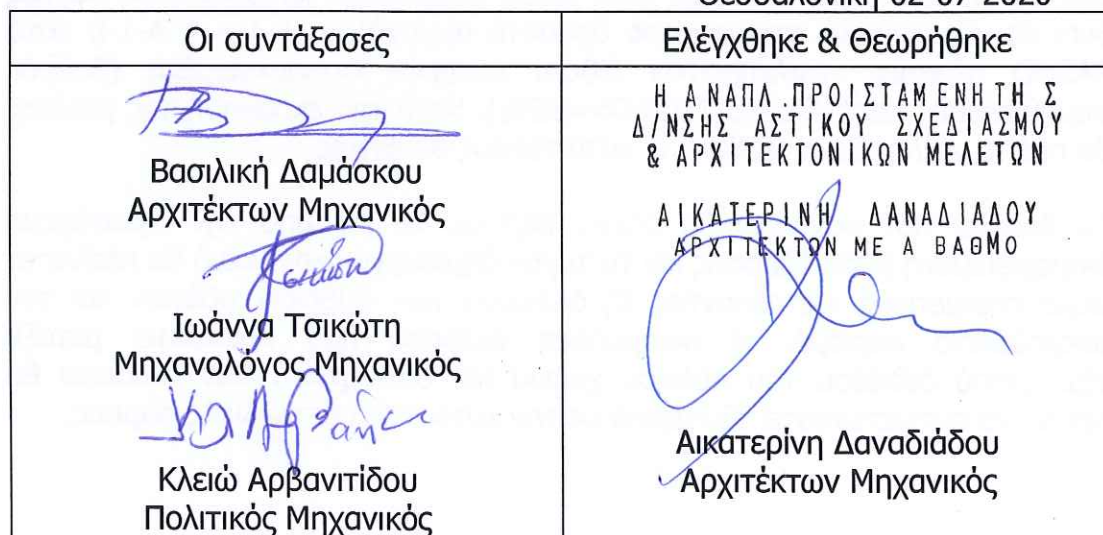 Θεσσαλονίκη 02-07-2020
Οι συντάξασες
Ελέγχθηκε & Θεωρήθηκε
Βασιλική Δαμάσκου
Αρχιτέκτων Μηχανικός
Ιωάννα Τσικώτη
Μηχανολόγος Μηχανικός
Κλειώ Αρβανιτίδου
Πολιτικός Μηχανικός
Η ΑΝΑΠΛ.ΠΡΟΙΣΤΑΜΕΝΗ ΤΗΣ
Δ/ΝΣΗΣ ΑΣΤΙΚΟΥ ΣΧΕΔΙΑΣΜΟΥ
& ΑΡΧΙΤΕΚΤΟΝΙΚΩΝ ΜΕΛΕΤΩΝ
ΑΙΚΑΤΕΡΙΝΗ ΔΑΝΑΔΙΑΔΟΥ
ΑΡΧΙΤΕΚΤΩΝ ΜΕ Α ΒΑΘΜΟ
Αικατερίνη Δαναδιάδου
Αρχιτέκτων Μηχανικός